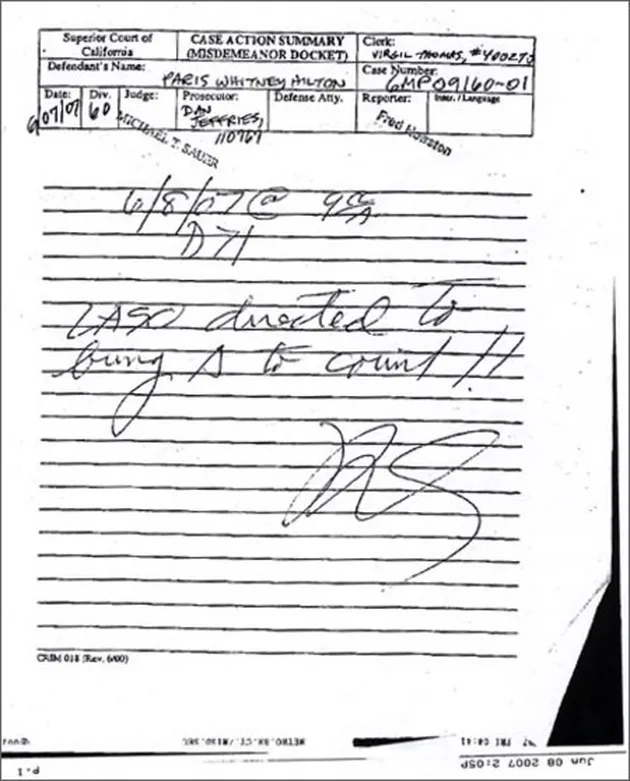 Superior Court of California
CASE ACTION SUMMARY (MISDEMEANOR DOCKET)
Clerk: VIRGIL THOMAS, #400270
Defendant's Name: PARIS WHITNEY HILTON
Case Number: 6MP09160-01
Date: 6/07/07
Div. 60
Judge: MICHAEL T. SAUER
Prosecutor: DAN JEFFRIES, 110767
Defense Atty.
Reporter: Fred Houston
Inter./Language
6/8/07 @ 9 A
D 71
LASO directed to
bring Δ to court!!
CRIM 018 (Rev. 6/00)
Jun 08 2007 2:05P
p.1